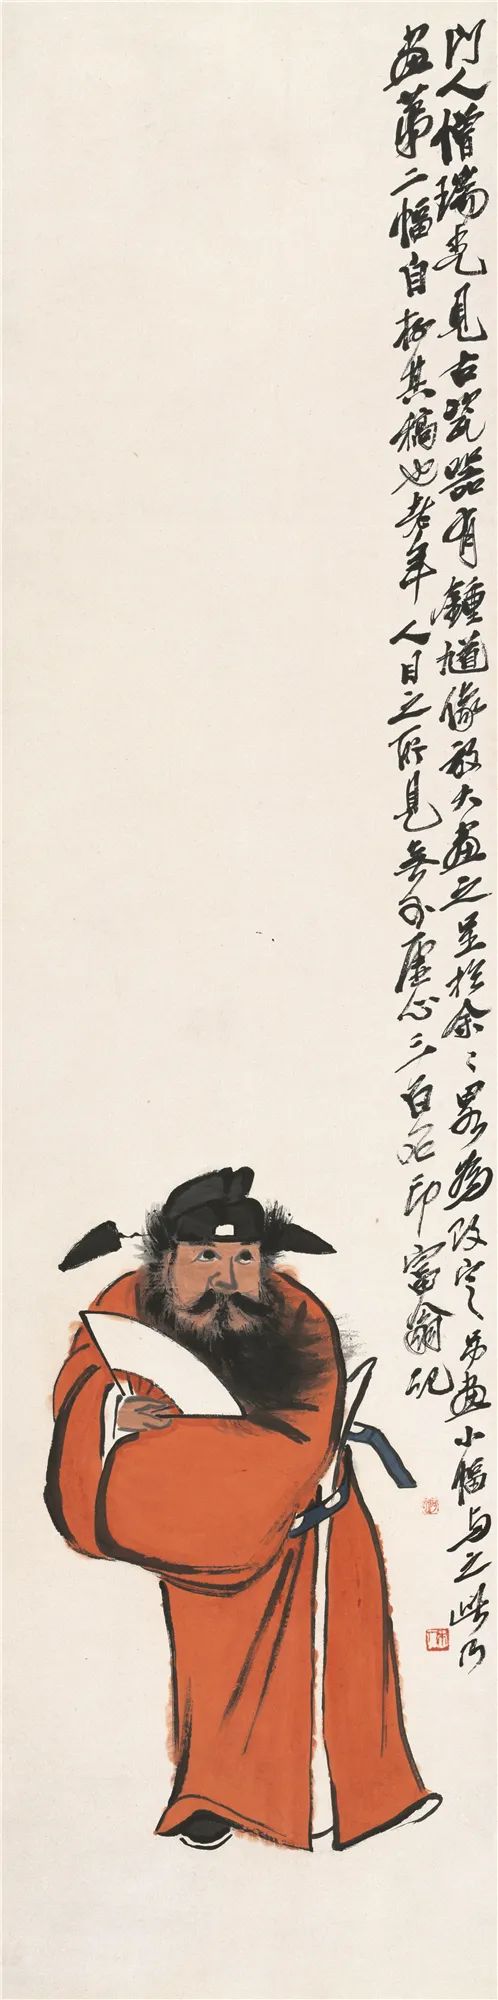 门人僧瑞光見古瓷器有鍾馗像放大畫之呈於余〻畧為改定〻另畫小幅与之此乃
畫第二幅自存其稿也老年人目之所見無不虛心三百石印富翁記